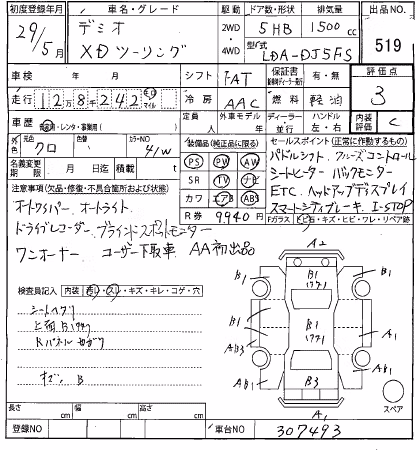 初度登録年月 車名・グレード 駆動 ドア数・形状 排気量 出品NO.
29/5月 デミオ XDツーリング 2WD・4WD 5HB 1500cc 519
型式 LDA-DJ5FS
車検 年 月 シフト FAT 保証書 有・無 評価点 3
走行 128千242 km マイル 冷房 AAC 燃料 軽油
車歴 自家用・レンタ・事業用( ) 定員 人 外車モデル 年 ディーラー・並行 ハンドル 左・右 内装評価 C
外色 元色 クロ カラーNO 41W 装備品(純正品に限る) セールスポイント(正常に作動するもの)
名義変更期限 月 日迄 積載量 t
PS PW AW パドルシフト クルーズコントロール
SR TV ナビ シートヒーター バックモニター
カワ エアB ABS ETC ヘッドアップディスプレイ
R券 9940円 スマートシティブレーキ i-STOP
Fガラス 飛石・キズ・ヒビ・ワレ・リペア跡
注意事項(欠品・修復・不具合箇所および状態)
オートワイパー オートライト
ドライブレコーダー ブラインドスポットモニター
ワンオーナー ユーザー下取車 AA初出品
検査員記入 内装 汚れ・スレ・キズ・キレ・コゲ・穴
シートヘタリ
キズ、B
A2
B1 B1 B1 A1
B1
AB3 A1
AB1 B3 AB1
A1
スペア
長さ cm 幅 cm 高さ cm
登録NO 車台NO 307493